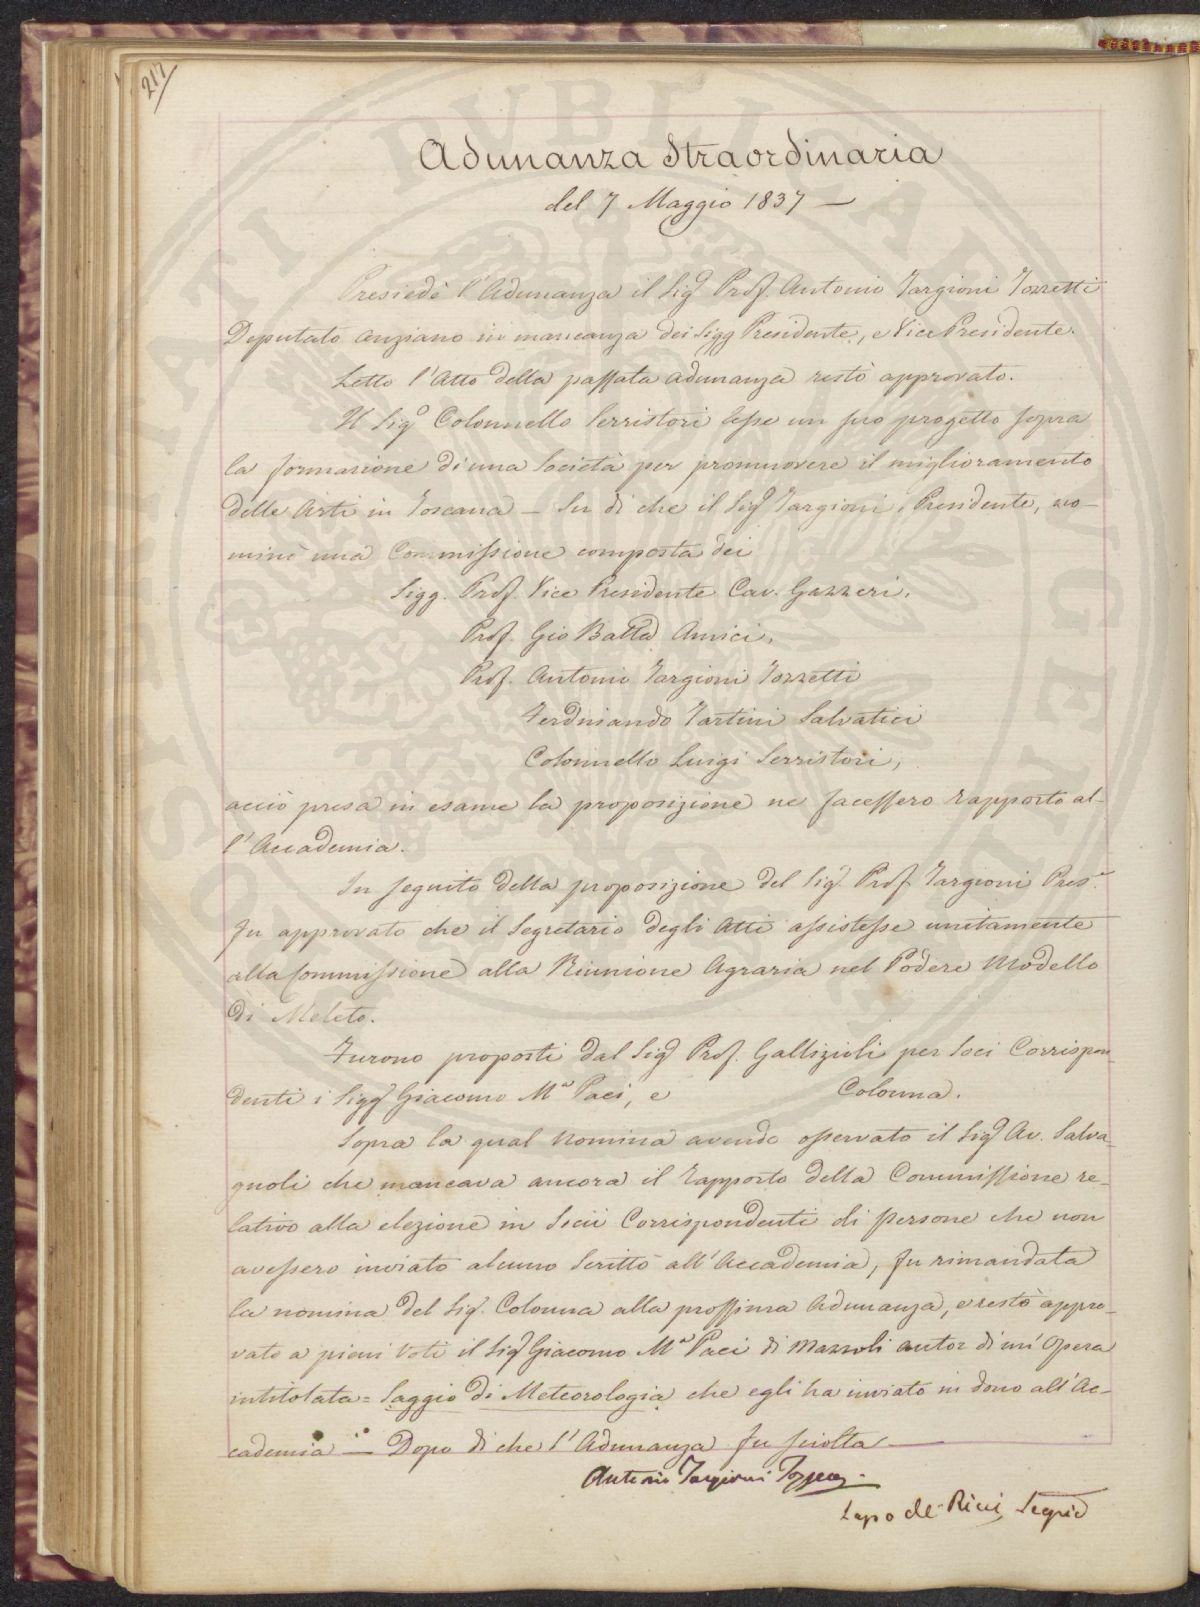 217
Adunanza Straordinaria
del 7 Maggio 1837 —
Presiedè l'Adunanza il Sigr Prof. Antonio Targioni Tozzetti
Deputato anziano in mancanza dei Sigg Presidente, e Vice Presidente.
Letto l'Atto della passata adunanza restò approvato.
Il Sigr Colonnello Serristori lesse un suo progetto sopra
la formazione di una Società per promuovere il miglioramento
delle Arti in Toscana — Su di che il Sigr Targioni, Presidente, no-
minò una Commissione composta dei
Sigg. Prof. Vice Presidente Cav. Gazzeri,
Prof. Gio Batta Amici,
Prof. Antonio Targioni Tozzetti
Ferdinando Tartini Salvatici
Colonnello Luigi Serristori,
acciò presa in esame la proposizione ne facessero rapporto al-
l'Accademia.
In seguito della proposizione del Sigr Prof. Targioni Pres.e
fu approvato che il Segretario degli Atti assistesse unitamente
alla Commissione alla Riunione Agraria nel Podere Modello
di Meleto.
Furono proposti dal Sigr Prof. Gallizioli per Soci Corrispon-
denti i Sigg Giacomo Ma Paci, e Colonna.
Sopra la qual nomina avendo osservato il Sigr Av. Salva-
gnoli che mancava ancora il rapporto della Commissione re-
lativo alla elezione in Socii Corrispondenti di persone che non
avessero inviato alcuno scritto all'Accademia, fu rimandata
la nomina del Sigr. Colonna alla prossima adunanza, e restò appro-
vato a pieni voti il Sigr Giacomo Ma Paci di autor di un' Opera
intitolata = Saggio di Meteorologia che egli ha inviato in dono all'Ac-
cademia — Dopo di che l'Adunanza fu sciolta —
Antonio Targioni Tozzetti
Lapo de' Ricci Segrio
SOCIETATI PUBLICAE FLORENTINAE